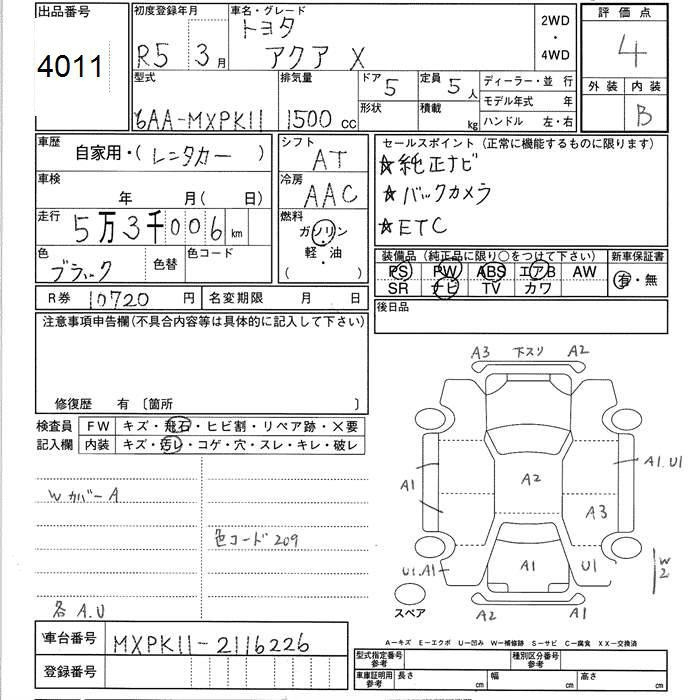 出品番号
4011
初度登録年月
R5 3月
車名・グレード
トヨタ
アクア X
2WD
・
4WD
評価点
4
外装 内装
B
型式
6AA-MXPK11
排気量
1500 cc
ドア 5
形状
定員 5 人
積載 kg
ディーラー・並 行
モデル年式 年
ハンドル 左・右
車歴
自家用・( レンタカー )
車検
年 月( 日)
走行
5万3千006 km
色
ブラック
色替
色コード
シフト
AT
冷房
AAC
燃料
ガソリン
・
軽・油
( )
セールスポイント (正常に機能するものに限ります)
☆純正ナビ
☆バックカメラ
☆ETC
装備品 (純正品に限り○をつけて下さい)
PS PW ABS エアB AW
SR ナビ TV カワ
新車保証書
有・無
R券 10720 円
名変期限 月 日
後日品
注意事項申告欄(不具合内容等は具体的に記入して下さい)
修復歴 有 〔箇所 〕
検査員
記入欄
FW キズ・飛石・ヒビ割・リペア跡・×要
内装 キズ・汚レ・コゲ・穴・スレ・キレ・破レ
Wカバー A
色コード 209
各 A.U
A3 下スリ A2
A1
A2
A1.U1
A3
U1.A1
A1
U1
W2
スペア
A2
A1
車台番号
MXPK11-2116226
登録番号
A－キズ E－エクボ U－凹み W－補修跡 S－サビ C－腐食 XX－交換済
型式指定番号
参考
種別区分番号
参考
車庫証明用
参考
長さ cm
幅 cm
高さ cm